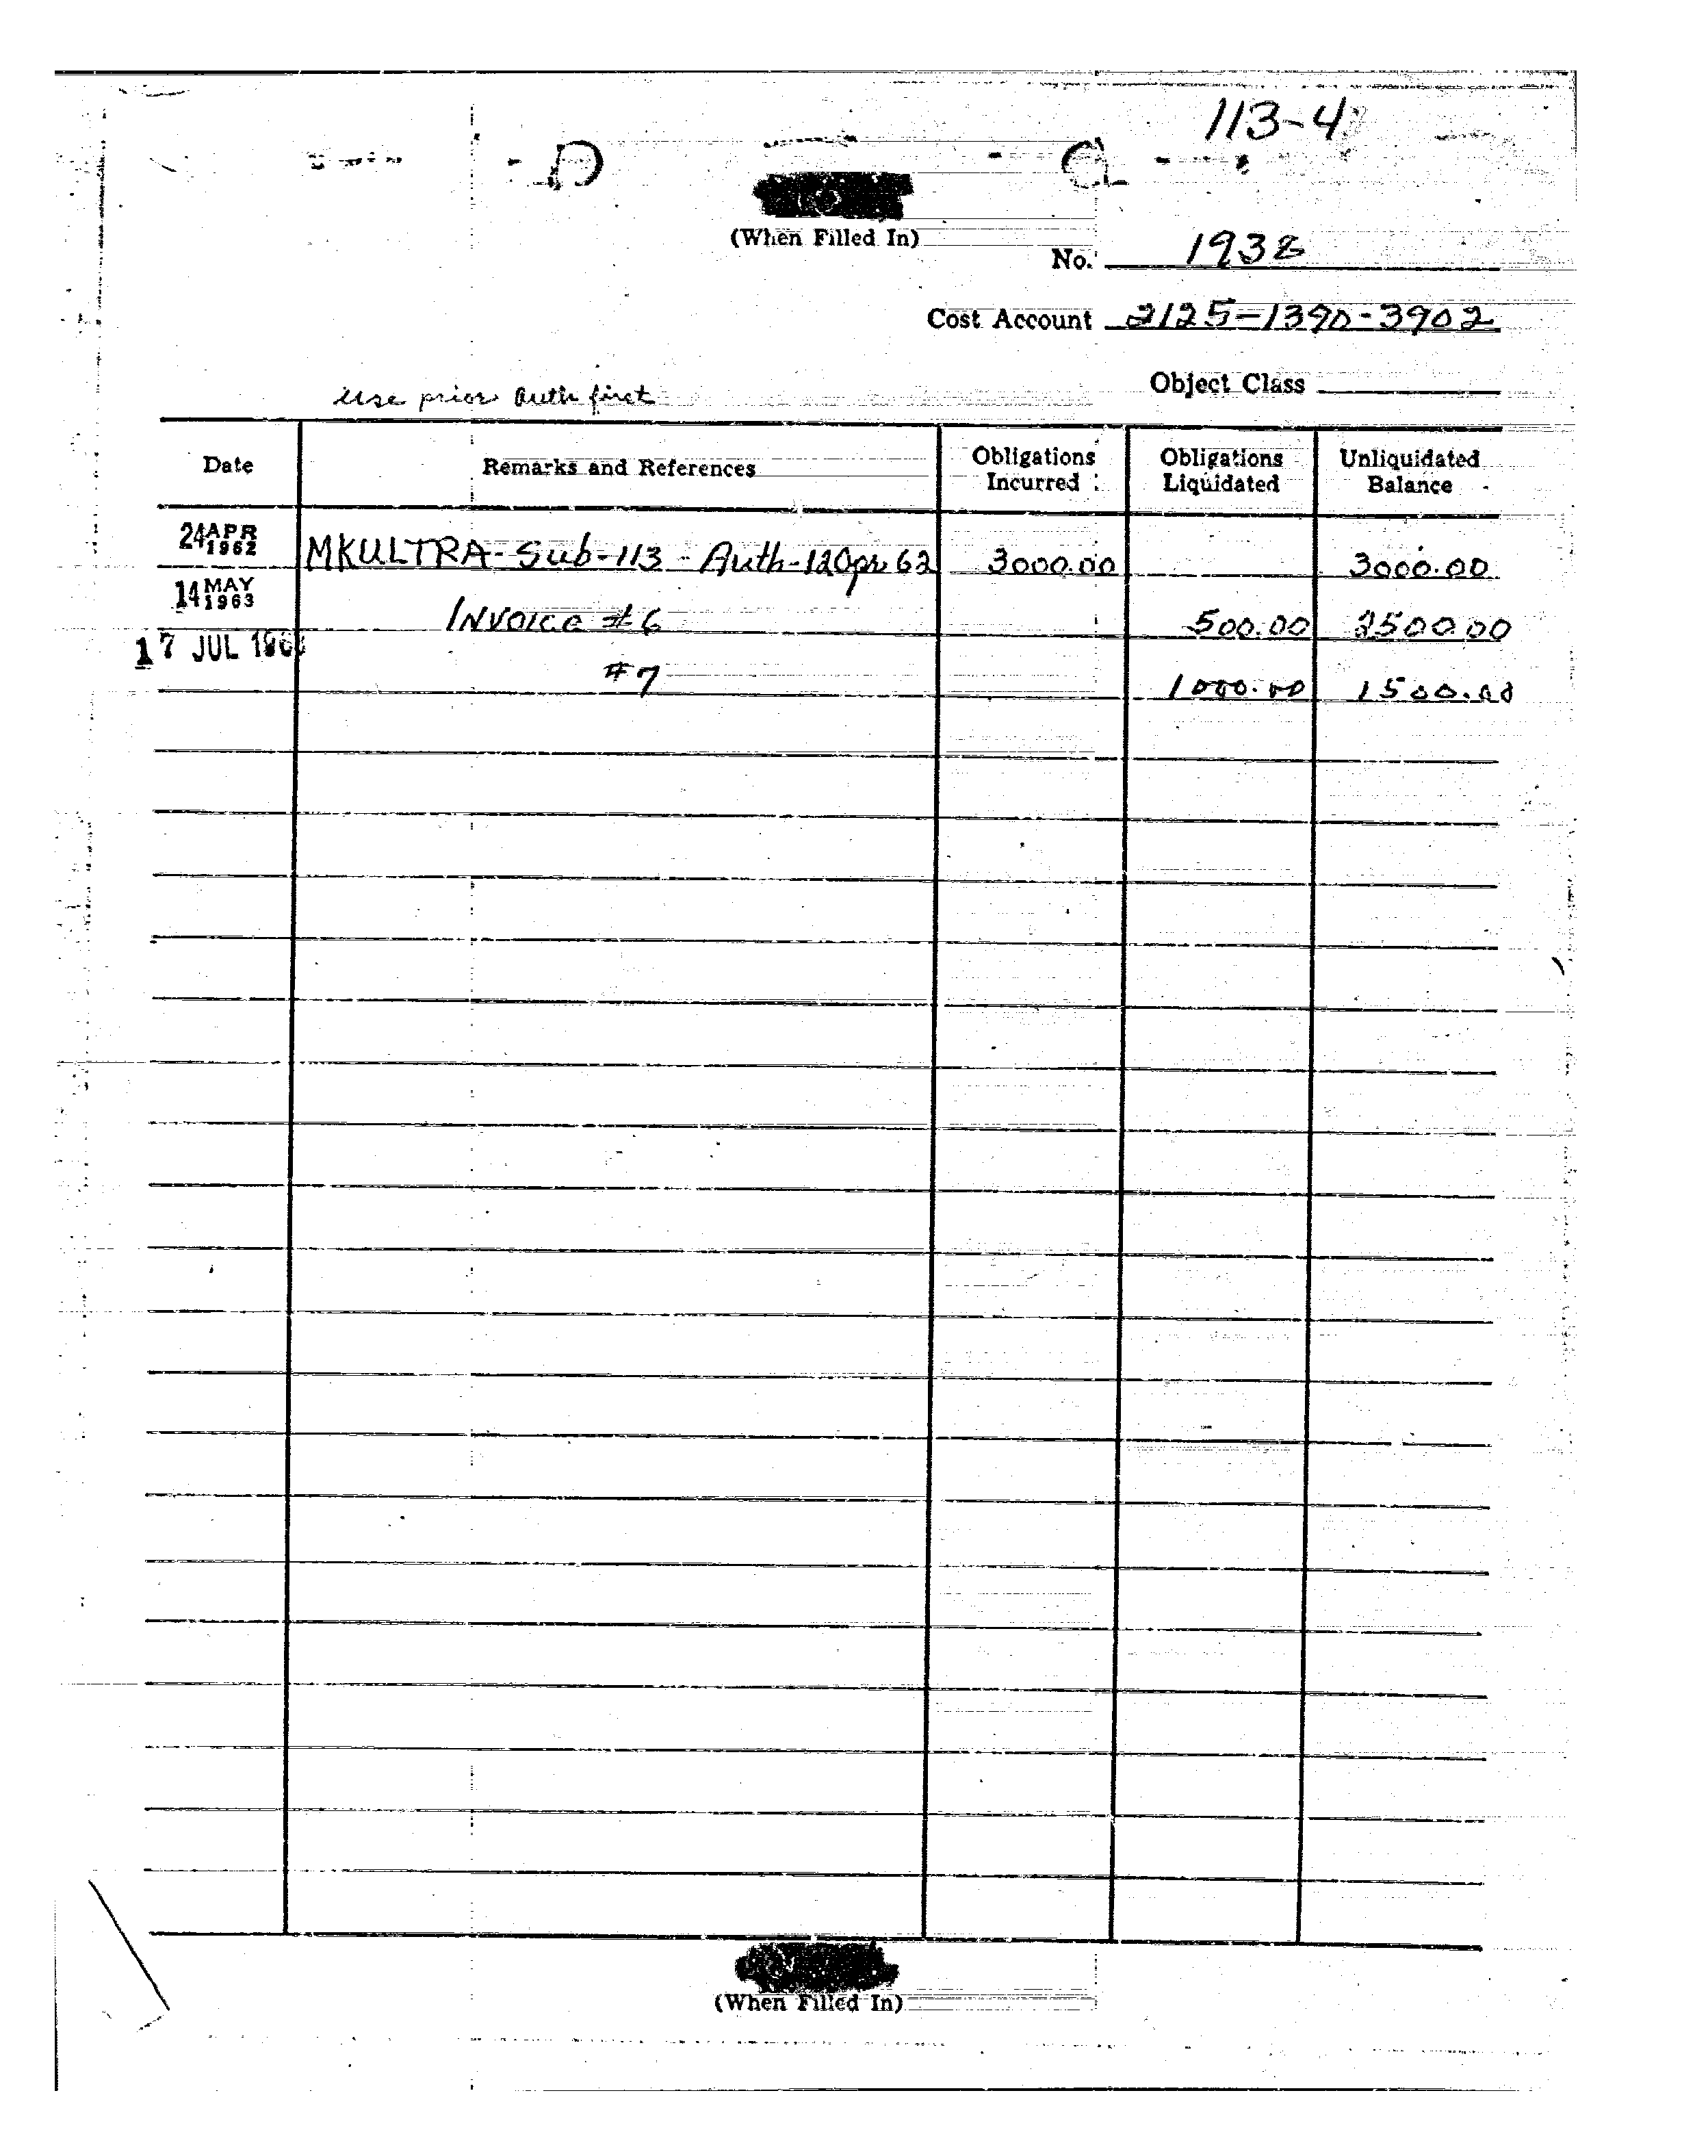 113-4
(When Filled In)
No. 1938
Cost Account 2125-1390-3902
Object Class
Use prior Auth first
Date Remarks and References Obligations Incurred Obligations Liquidated Unliquidated Balance
24 APR 1962 MKULTRA - Sub-113 - Auth-12 Apr 62 3000.00 3000.00
14 MAY 1963 Invoice #6 500.00 2500.00
17 JUL #7 1000.00 1500.00
(When Filled In)